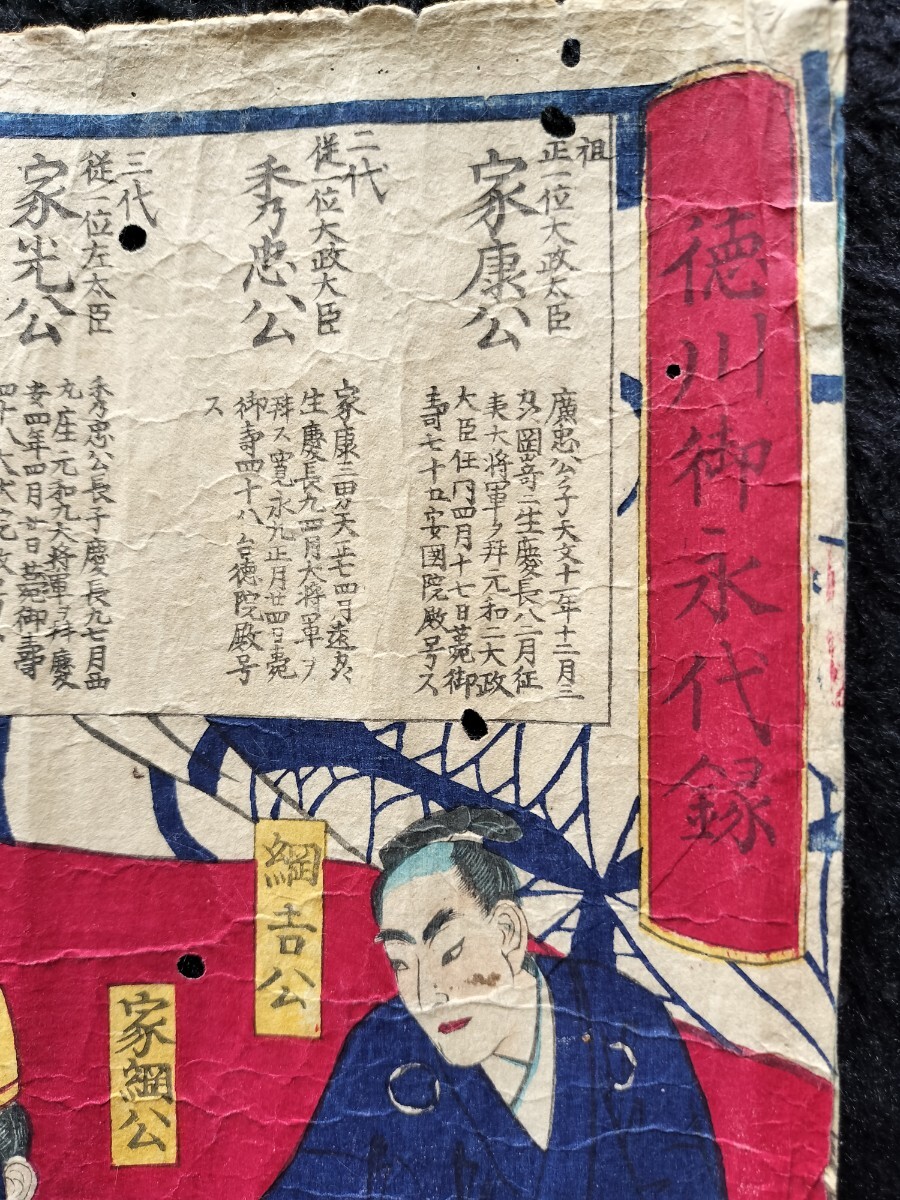 徳川御永代録
祖
正一位大政太臣
家康公
廣忠公ノ子天文十一年十二月三
岡嵜ニ生慶長八二月征
夷大将軍ヲ拜元和二大政
大臣任同四月十七日薨御
壽七十 安國院殿号ス
二代
従一位大政大臣
秀忠公
家康三男天正七四月遠
生慶長九四月大将軍ヲ
拜ス寛永九正月廿四日薨
御寿四十八台徳院殿号
ス
三代
従一位左太臣
家光公
秀忠公長子慶長九七月西
丸ニ産元和九大将軍ヲ拜慶
安四年四月廿日薨御壽
四十八大猷院殿
綱吉公
家綱公